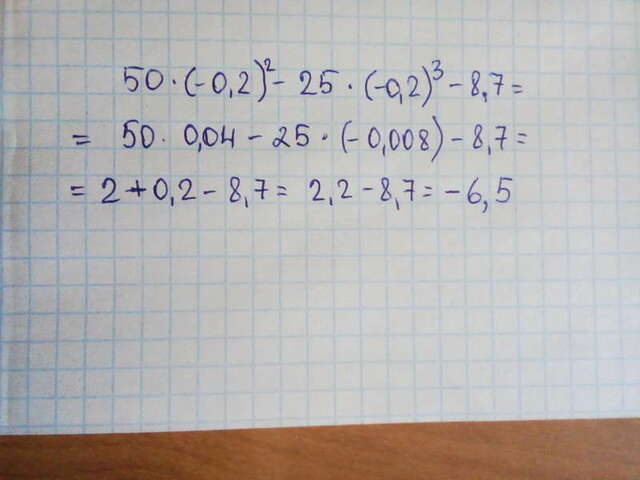 50·(-0,2)²- 25·(-0,2)³-8,7=
= 50·0,04-25·(-0,008)-8,7=
= 2+0,2-8,7= 2,2-8,7=-6,5